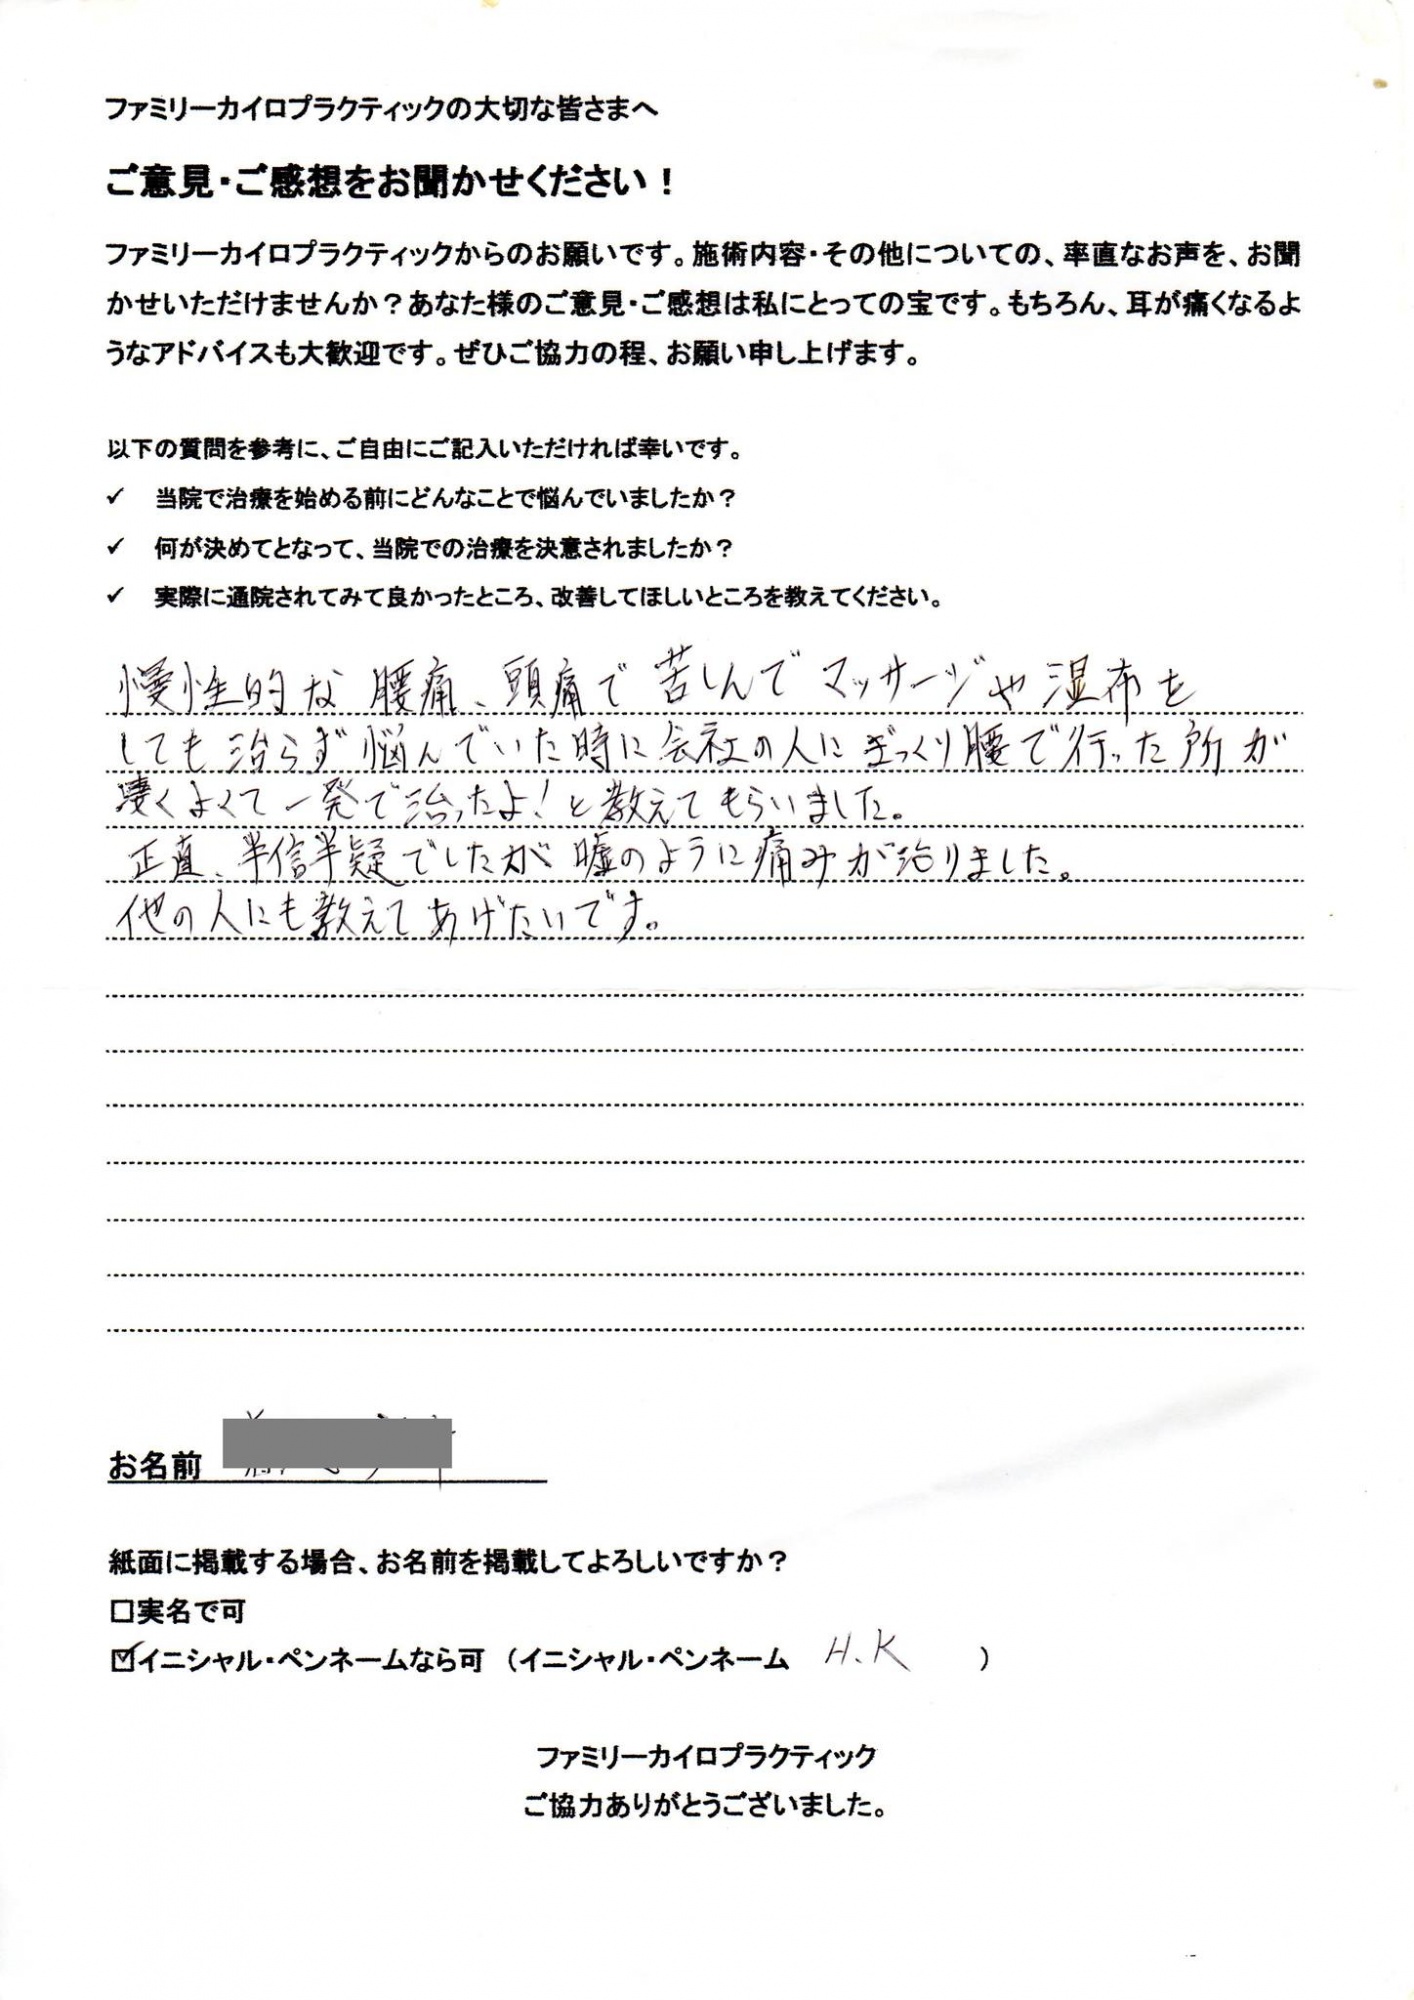 ファミリーカイロプラクティックの大切な皆さまへ
ご意見・ご感想をお聞かせください！
ファミリーカイロプラクティックからのお願いです。施術内容・その他についての、率直なお声を、お聞
かせいただけませんか？あなた様のご意見・ご感想は私にとっての宝です。もちろん、耳が痛くなるよ
うなアドバイスも大歓迎です。ぜひご協力の程、お願い申し上げます。
以下の質問を参考に、ご自由にご記入いただければ幸いです。
✓ 当院で治療を始める前にどんなことで悩んでいましたか？
✓ 何が決めてとなって、当院での治療を決意されましたか？
✓ 実際に通院されてみて良かったところ、改善してほしいところを教えてください。
慢性的な腰痛、頭痛で苦しんでマッサージや湿布を
しても治らず悩んでいた時に会社の人にぎっくり腰で行った所が
凄くよくて一発で治ったよ！と教えてもらいました。
正直、半信半疑でしたが嘘のように痛みが治りました。
他の人にも教えてあげたいです。
お名前
紙面に掲載する場合、お名前を掲載してよろしいですか？
□実名で可
☑イニシャル・ペンネームなら可（イニシャル・ペンネーム H.K ）
ファミリーカイロプラクティック
ご協力ありがとうございました。